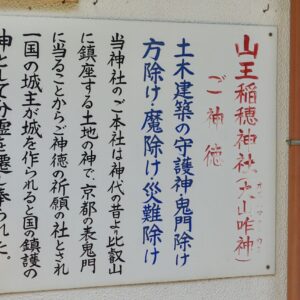 山王稲穂神社(大山咋神)
ご神徳
土木建築の守護神・鬼門除け
方除け・魔除け・災難除け
当神社のご本社は神代の昔より比叡山
に鎮座する土地の神で、京都の表鬼門
に当ることからご神徳の祈願の社とされ
一国の城主が城を作られると国の鎮護の
神として分霊を